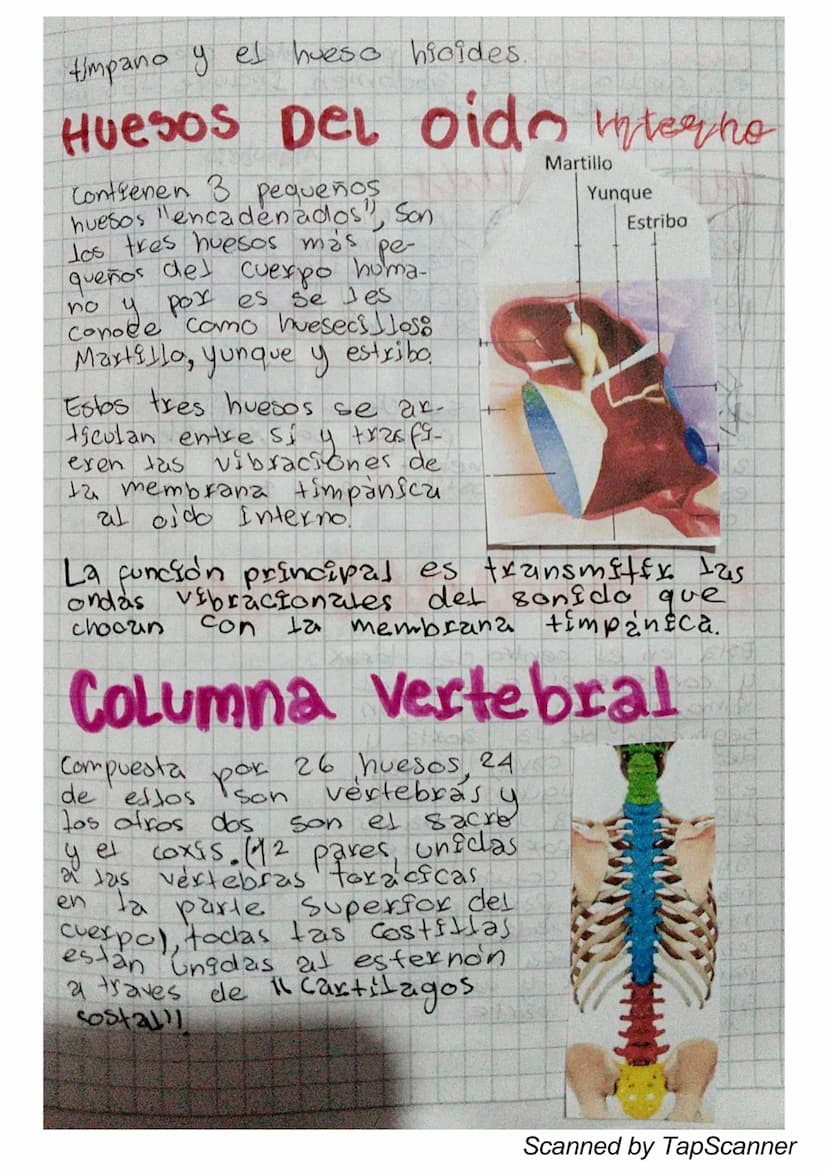 tímpano y el hueso hioides.
HUESOS DEL OIDO Interno
Contienen 3 pequeños
huesos "encadenados", Son
los tres huesos más pe-
queños del cuerpo huma-
no y por es se les
conoce como huesecillos:
Martillo, yunque y estribo.
Estos tres huesos se ar-
ticulan entre sí y trasfi-
eren las vibraciones de
la membrana timpánica
al oido interno.
Martillo
Yunque
Estribo
La función principal es transmitir las
ondas vibracionales del sonido que
chocan con la membrana timpánica.
COLUMNA VERTEBRAL
Compuesta por 26 huesos, 24
de ellos son vértebras y
los otros dos son el sacro
y el coxis. (12 pares, unidas
a las vértebras torácicas
en la parte superior del
cuerpo), todas las costillas
están unidas al esternón
a traves de "Cartílagos
costal"
Scanned by TapScanner